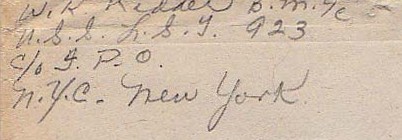 W. R. Kedder B. M. 1/c
U. S. S. L. S. T. 923
c/o F. P. O.
N. Y. C. - New York